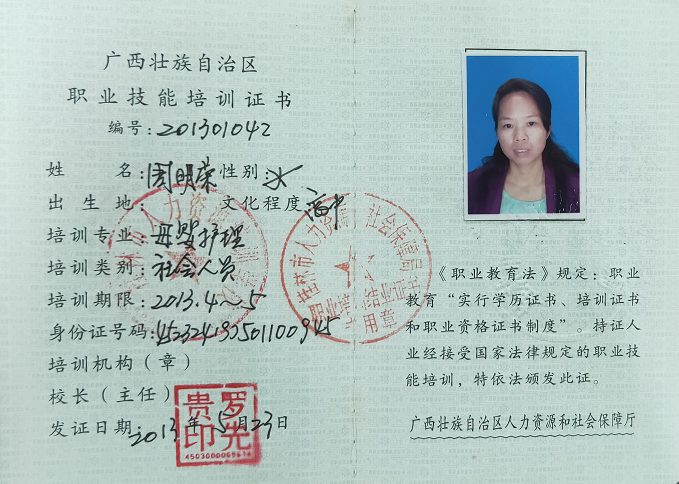 广西壮族自治区
职业技能培训证书
编号:201301042
姓 名:周明荣 性别:女
出生地: 文化程度:高中
培训专业:母婴护理
培训类别:社会人员
培训期限:2013.4~5
身份证号码:
培训机构(章)
校长(主任)
发证日期:2013年5月23日
罗先贵印
《职业教育法》规定:职业
教育“实行学历证书、培训证书
和职业资格证书制度”。持证人
业经接受国家法律规定的职业技
能培训,特依法颁发此证。
广西壮族自治区人力资源和社会保障厅